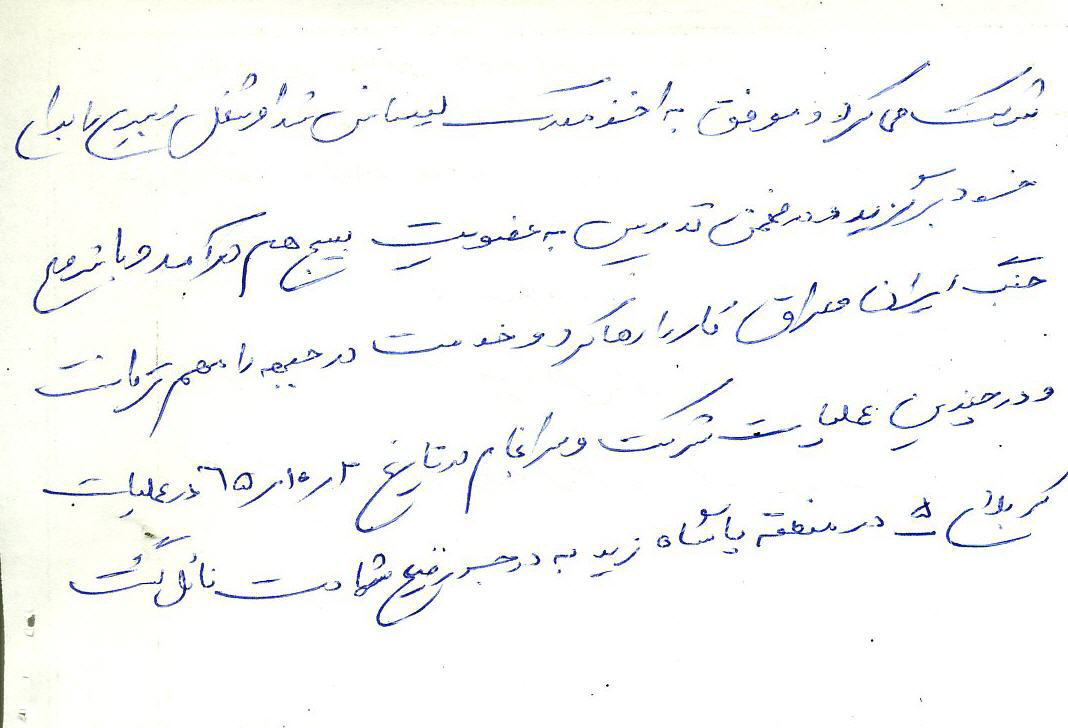 شرکت می کرد و موفق به اخذ مدرک لیسانس شد او شغل دبیری را برای
خود برگزید و در ضمن تدریس به عضویت بسیج هم درآمد و با شروع
جنگ ایران و عراق کار را رها کرد و خدمت در جبهه را مهم تر دانست
و در چندین عملیات شرکت و سرانجام در تاریخ ۶۵ در عملیات
کربلای ۵ در منطقه پاسگاه زید به درجه رفیع شهادت نائل گشت